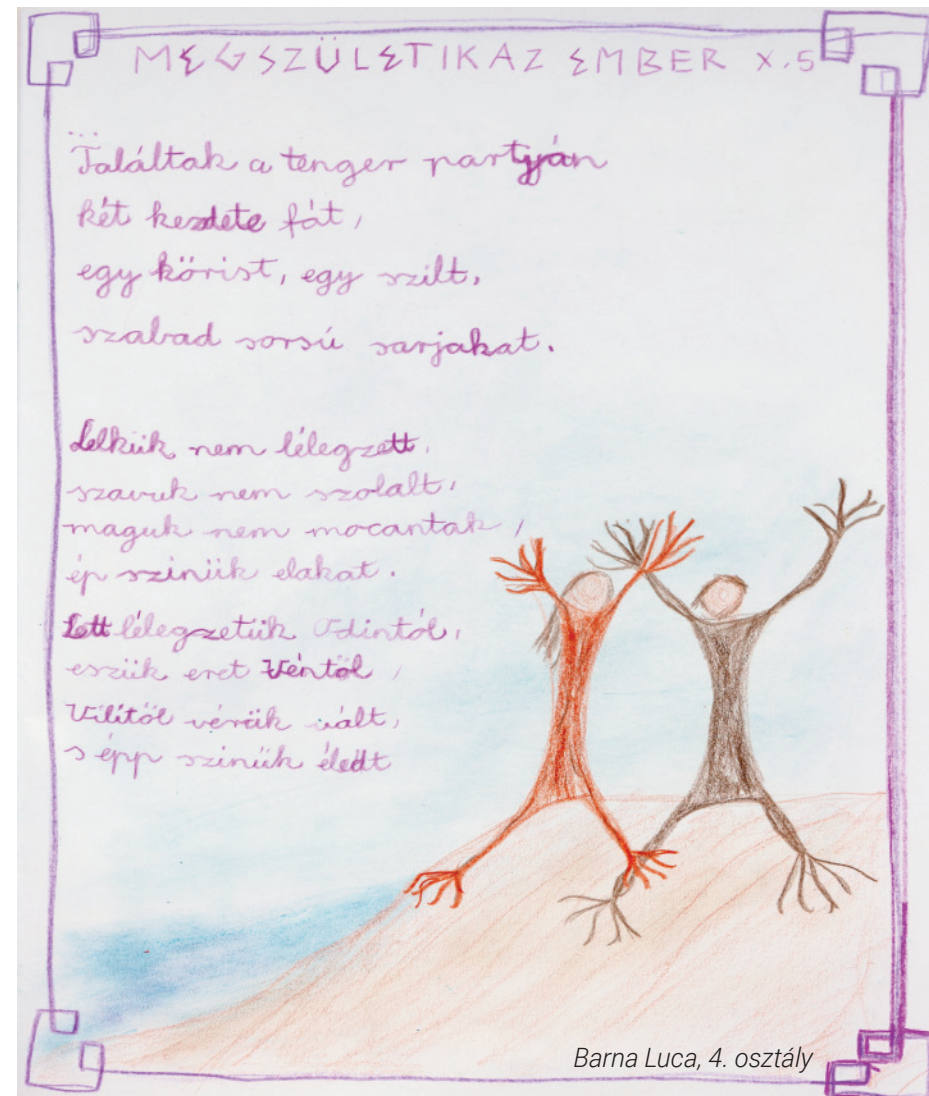 MEGSZÜLETIK AZ EMBER X.5
...
Találtak a tenger partján
két kezdete fát,
egy kőrist, egy szilt,
szabad sorsú sarjakat.
Lelkük nem lélegzett,
szavuk nem szolalt,
maguk nem mocantak,
ép szinük elakat.
Lett lélegzetük Odintól,
eszük eret Véntől,
Vilitől vérük vált,
s épp szinük éledt
Barna Luca, 4. osztály